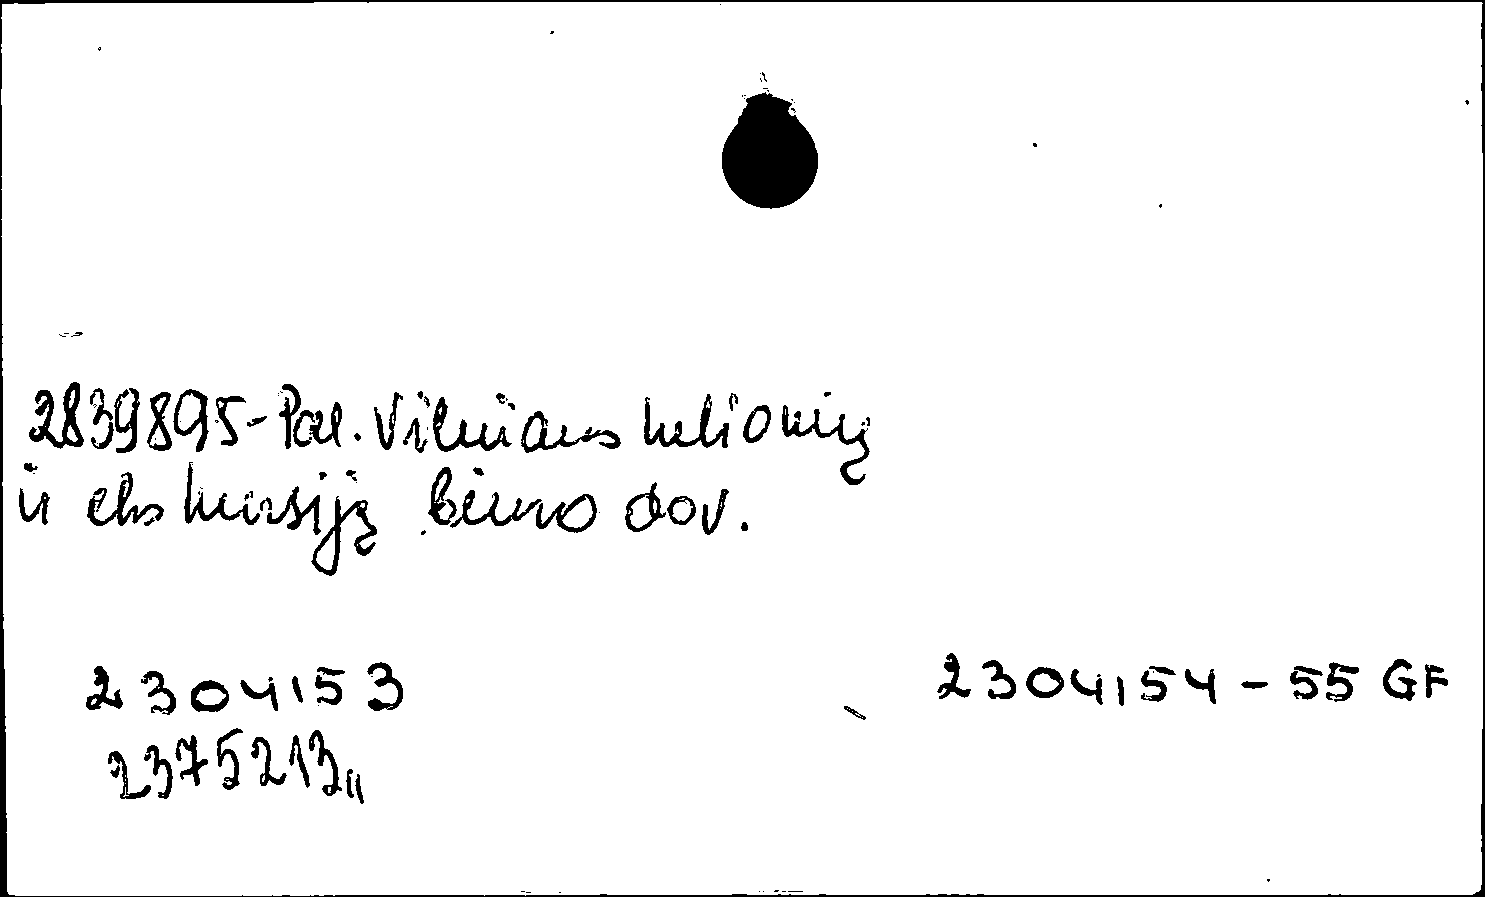 2839895-Pal. Vilniaus kelionių
ir ekskursijų biuro dov.
2304153
2304154-55 GF
2375213,,